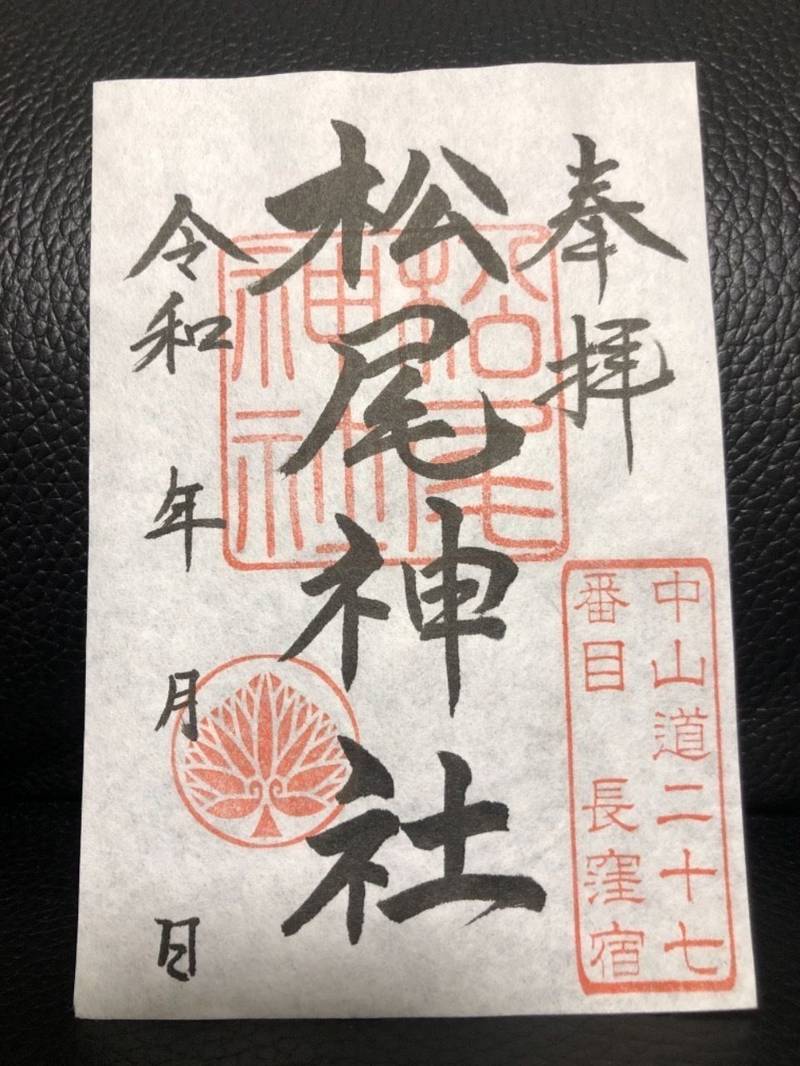 奉拝
中山道二十七
番目 長窪宿
松尾神社
松尾神社
令和 年 月 日